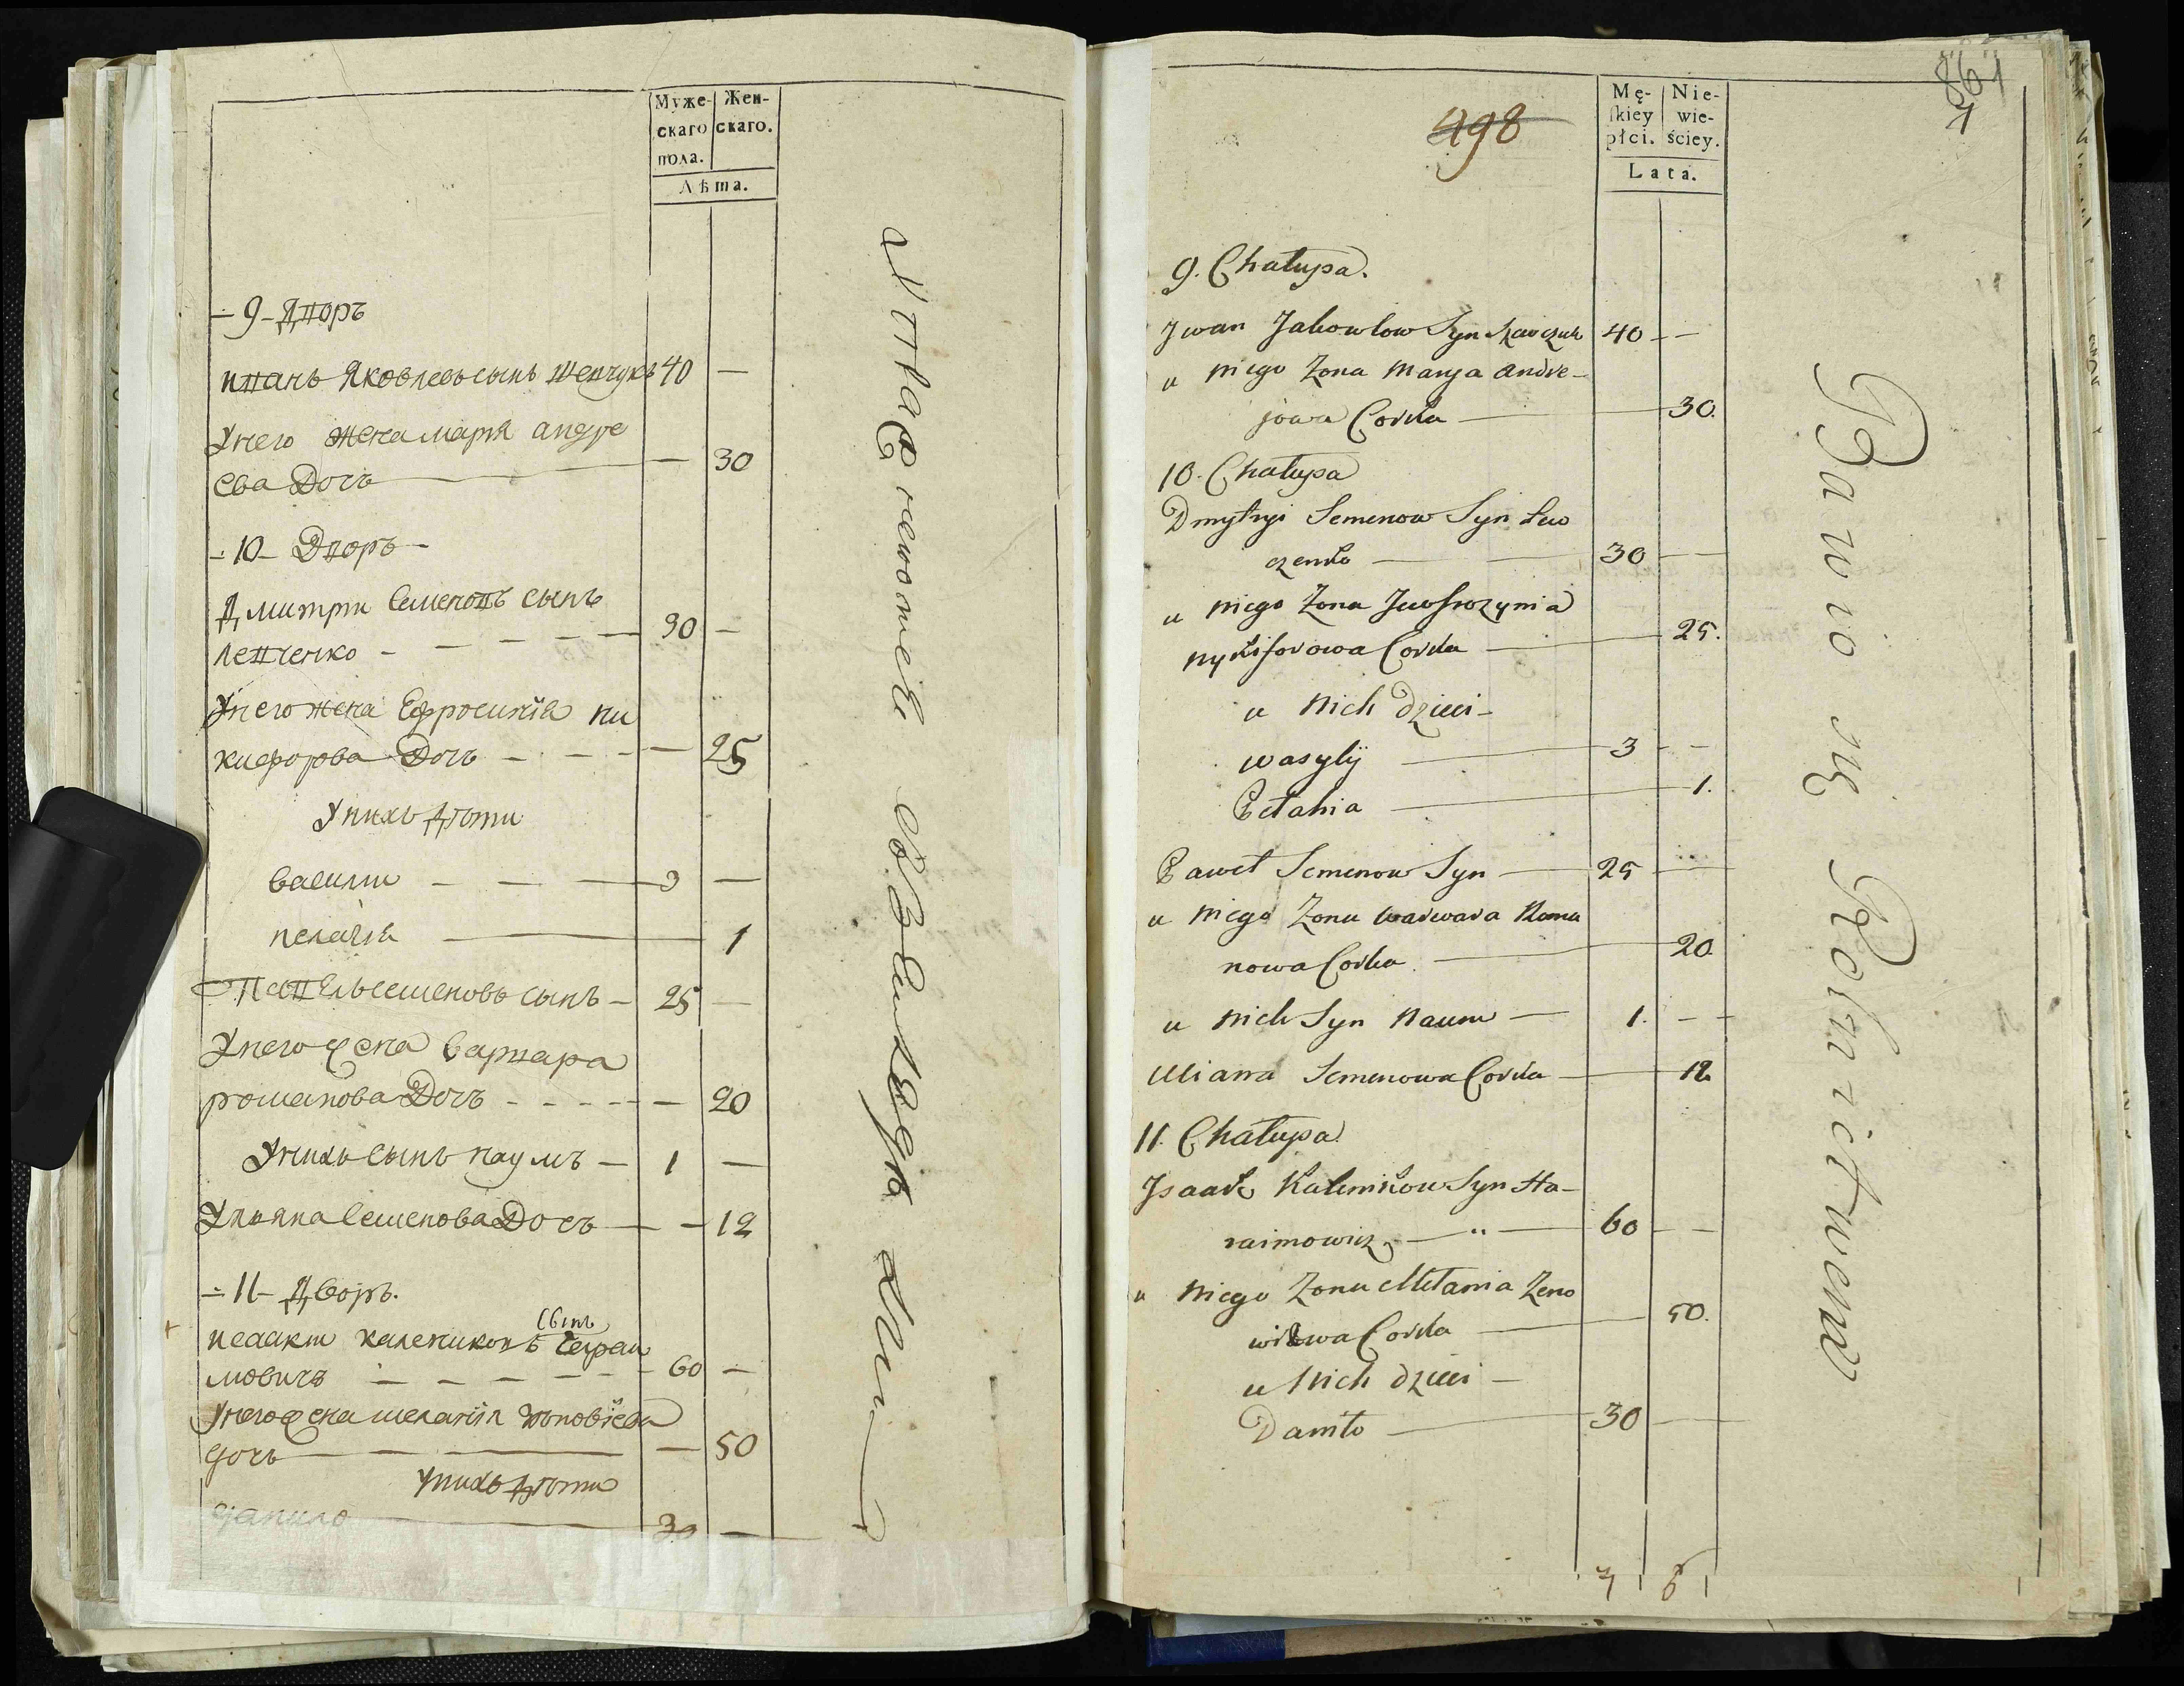 Муже-
скаго
пола.
Жен-
скаго.
Лѣта.
- 9 - Дворъ
иванъ Яковлевъ сынъ шевчукъ 40 —
Унего жена марія андре
ева Дочь — 30
- 10 - Дворъ -
Дмитри Семеновъ сынъ
левченко - — — — 30 —
Унего жена Ефросинія ни
кифорова Дочь - - - — 25
Унихъ дѣти
василии — — — 3 —
пелагія — 1
Павелъ семеновъ сынъ - 25 —
Унего жена варвара
романова Дочь - - - - — 20
Унихъ сынъ наумъ — 1 —
Ульяна Семенова Дочь — — 12
- 11 - Дворъ.
исаакъ калениковъ сынъ
мовичъ — — — — 60 —
Унего жена меланія
дочь — — 50
Унихъ дѣти
данило — 30 —
498
861
Mę-
skiey
płci.
Nie-
wie-
ściey.
Lata.
9. Chałupa.
Jwan Jakowlow Syn Szewczuk 40 - -
u niego Zona Marya Andre-
jowa Corka — 30.
10. Chałupa
Dmytryi Semenow Syn Lew
czenko — 30 — —
u niego Zona Jewfrozynia
nykiforowa Corka — 25.
u Nich dzieci -
wasylij — 3 - -
Pełahia — 1.
Paweł Semenow Syn — 25 —
u niego Zona warwara Roma
nowa Corka. — 20.
u nich Syn Naum — 1. - -
Uliana Semenowa Corka — 12
11. Chałupa
Jsaak Kalenikow Syn Ha-
raimowicz — " — 60 — —
u niego Zona Mełania Zeno
wiowa Corka — 50.
u Nich dzieci -
Daniło — 30 — —
7 6
Bawią się Rolnictwem